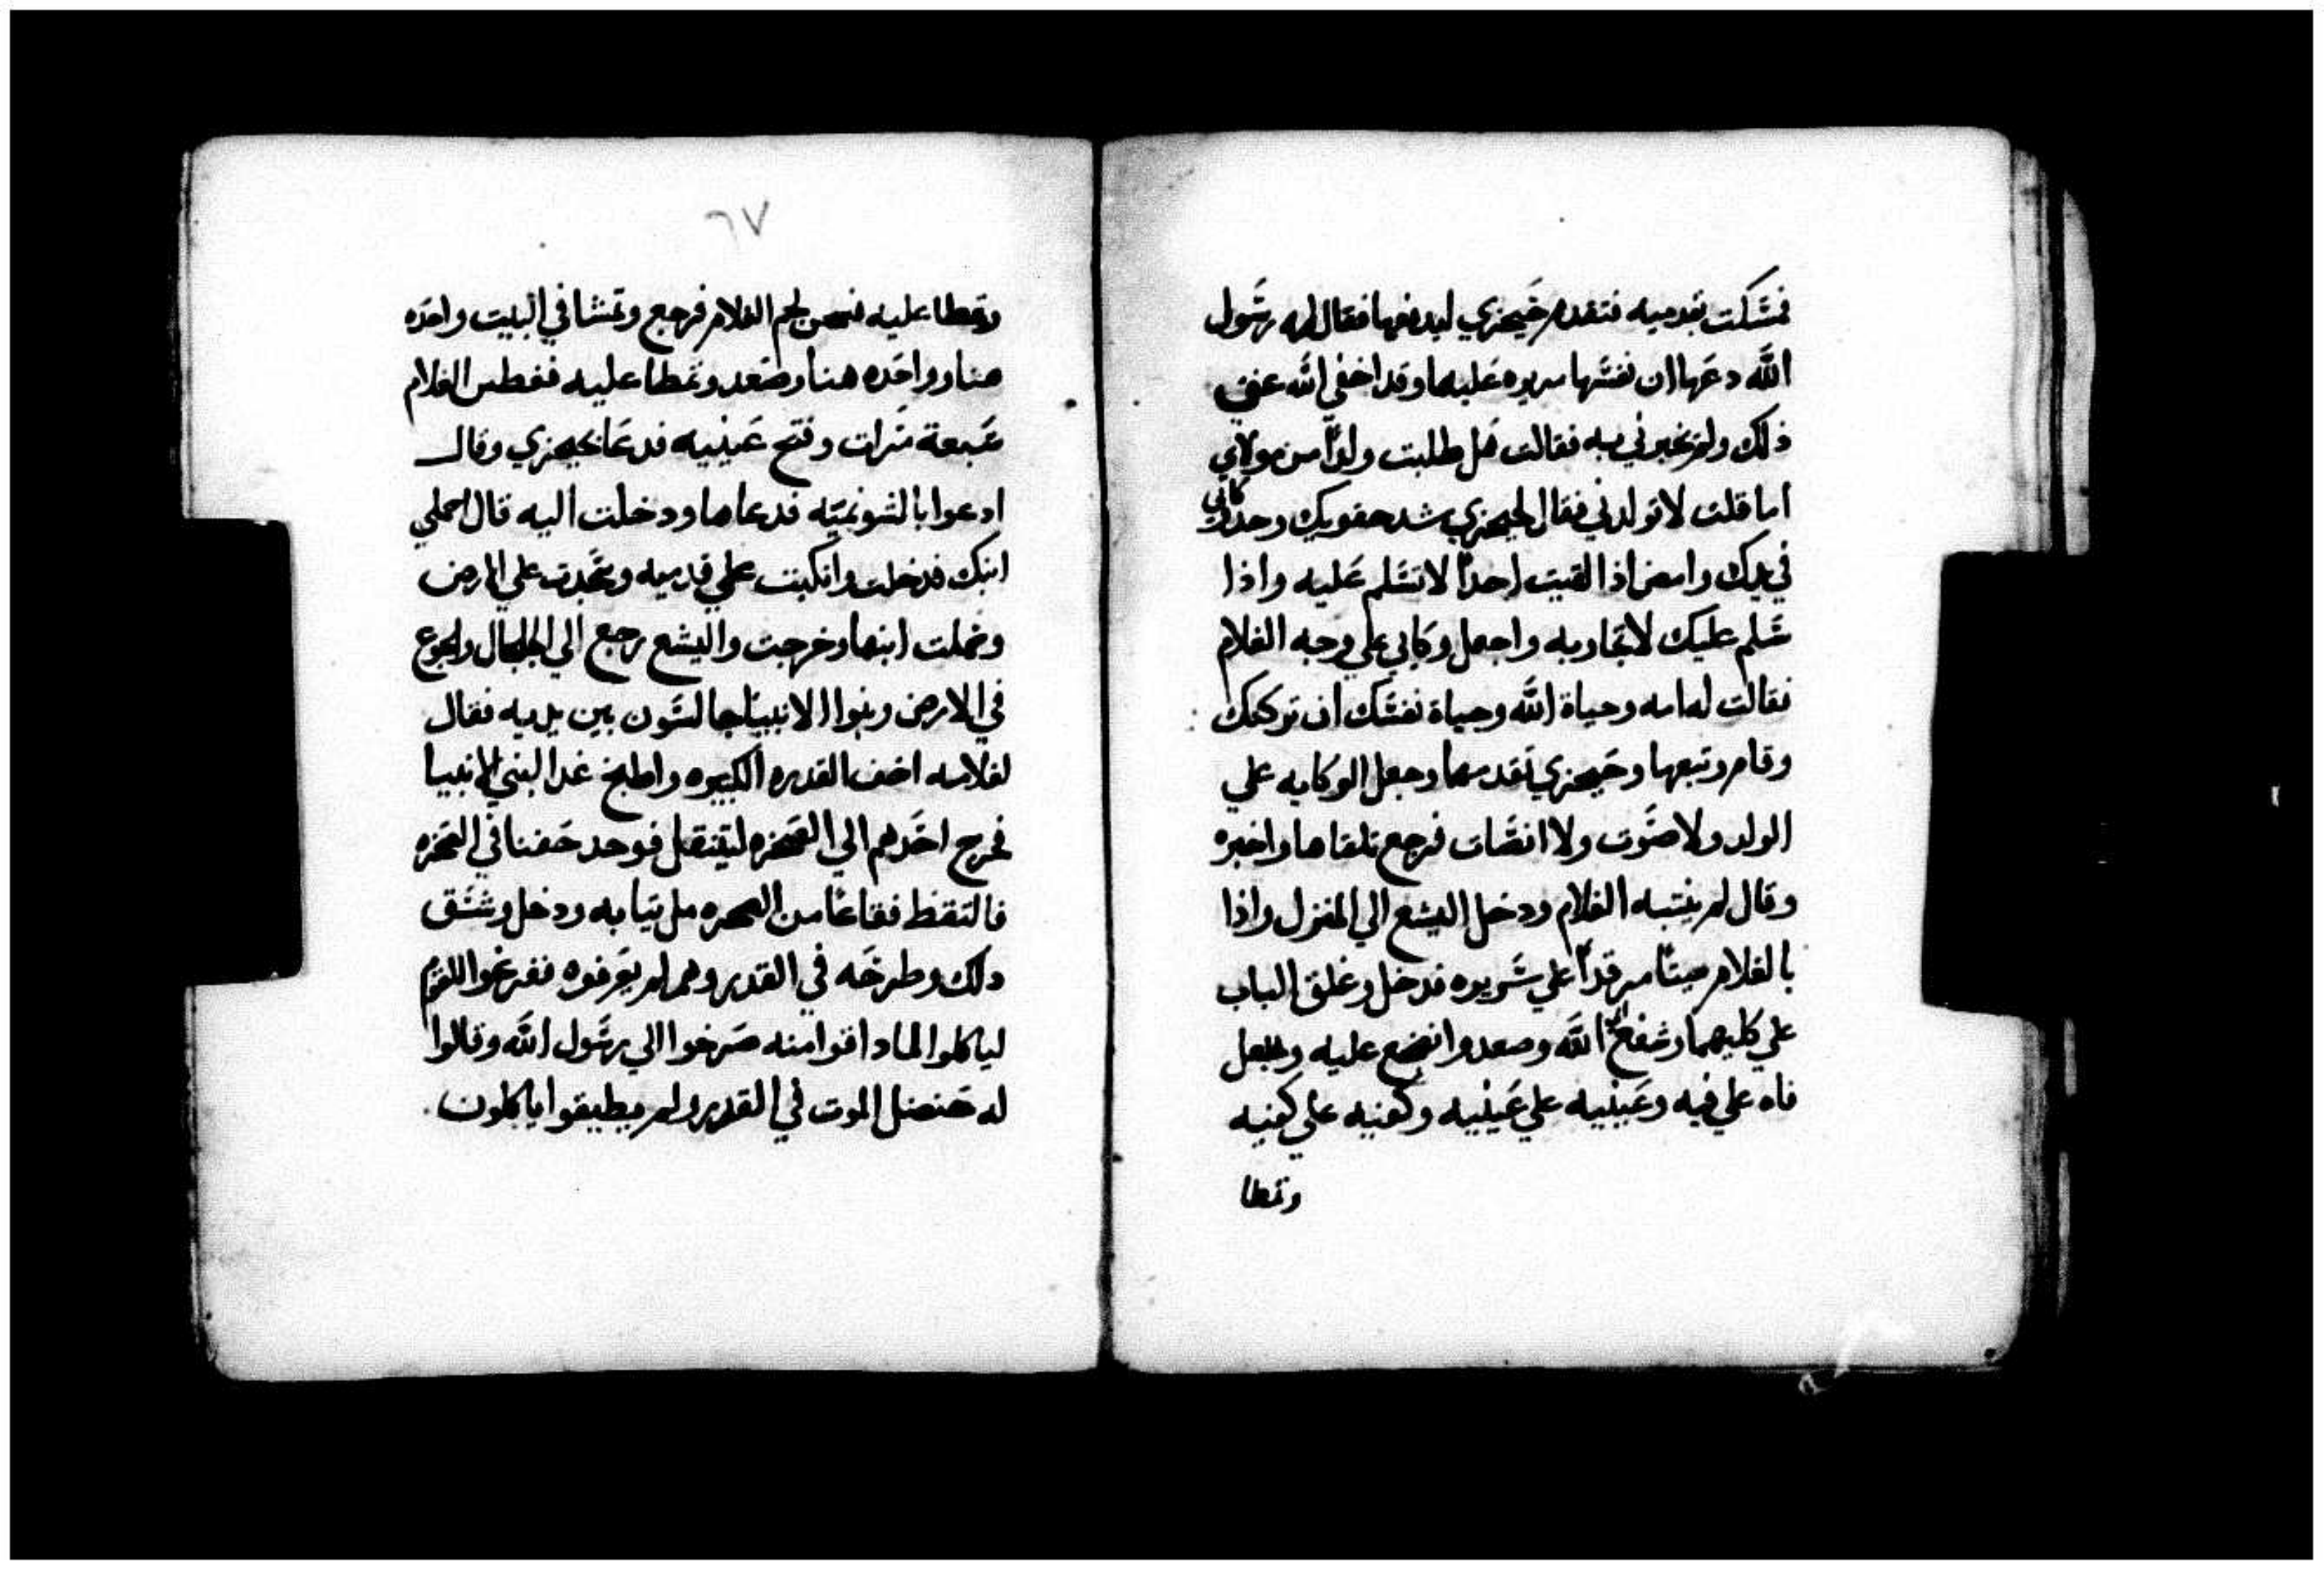 فمسكت بقدميه فتقدم جيحزي ليدفعها فقال له رسول
الله دعها ان نفسها مريره عليها وقد اخفى الله عني
ذلك ولم يخبرني به فقالت هل طلبت ولداً من مولاي
اما قلت لا تولدني فقال لجيحزي شد حقويك وخد وكاتي
في يدك وامض اذا لقيت احداً لا تسلم عليه واذا
سلم عليك لا تجاوبه واجعل وكاتي علي وجه الغلام
فقالت له امه وحياة الله وحياة نفسك ان تركتك
وقام وتبعها وجيحزي تقدمهما وجعل الوكايه علي
الولد ولا صوت ولا انصات فرجع تلقاها واخبره
وقال لم ينتبه الغلام ودخل اليشع الي المنزل واذا
بالغلام ميتاً مرقداً علي سريره فدخل وغلق الباب
علي كليهما وشفع الله وصعد وانضجع عليه وجعل
فاه علي فيه وعينيه علي عينيه وكفيه علي كفيه
وتمطا
٦٧
وتمطا عليه فسخن لحم الغلام فرجع وتمشا في البيت واحده
هنا وواحده هنا وصعد وتمطا عليه فعطس الغلام
سبعة مرات وفتح عينيه فدعا بجيحزي وقال
ادعوا بالشونميه فدعاها ودخلت اليه قال احملي
ابنك فدخلت وانكبت علي قدميه وسجدت علي الارض
وحملت ابنها وخرجت واليشع رجع الي الجلجال والجوع
في الارض وبنوا الانبيا جالسون بين يديه فقال
لغلامه اضف القدره الكبيره واطبخ غدا لبني الانبيا
فخرج احدهم الي الصحره ليتنقل فوجد جفنا في الصحره
فالتقط فقاعاً من الصحره مل ثيابه ودخل وشقق
دلك وطرحه في القدر وهم لم يعرفوه ففرغوا للقوم
لياكلوا لما داقوا منه صرخوا الي رسول الله وقالوا
له حنضل الموت في القدر ولم يطيقوا ياكلون